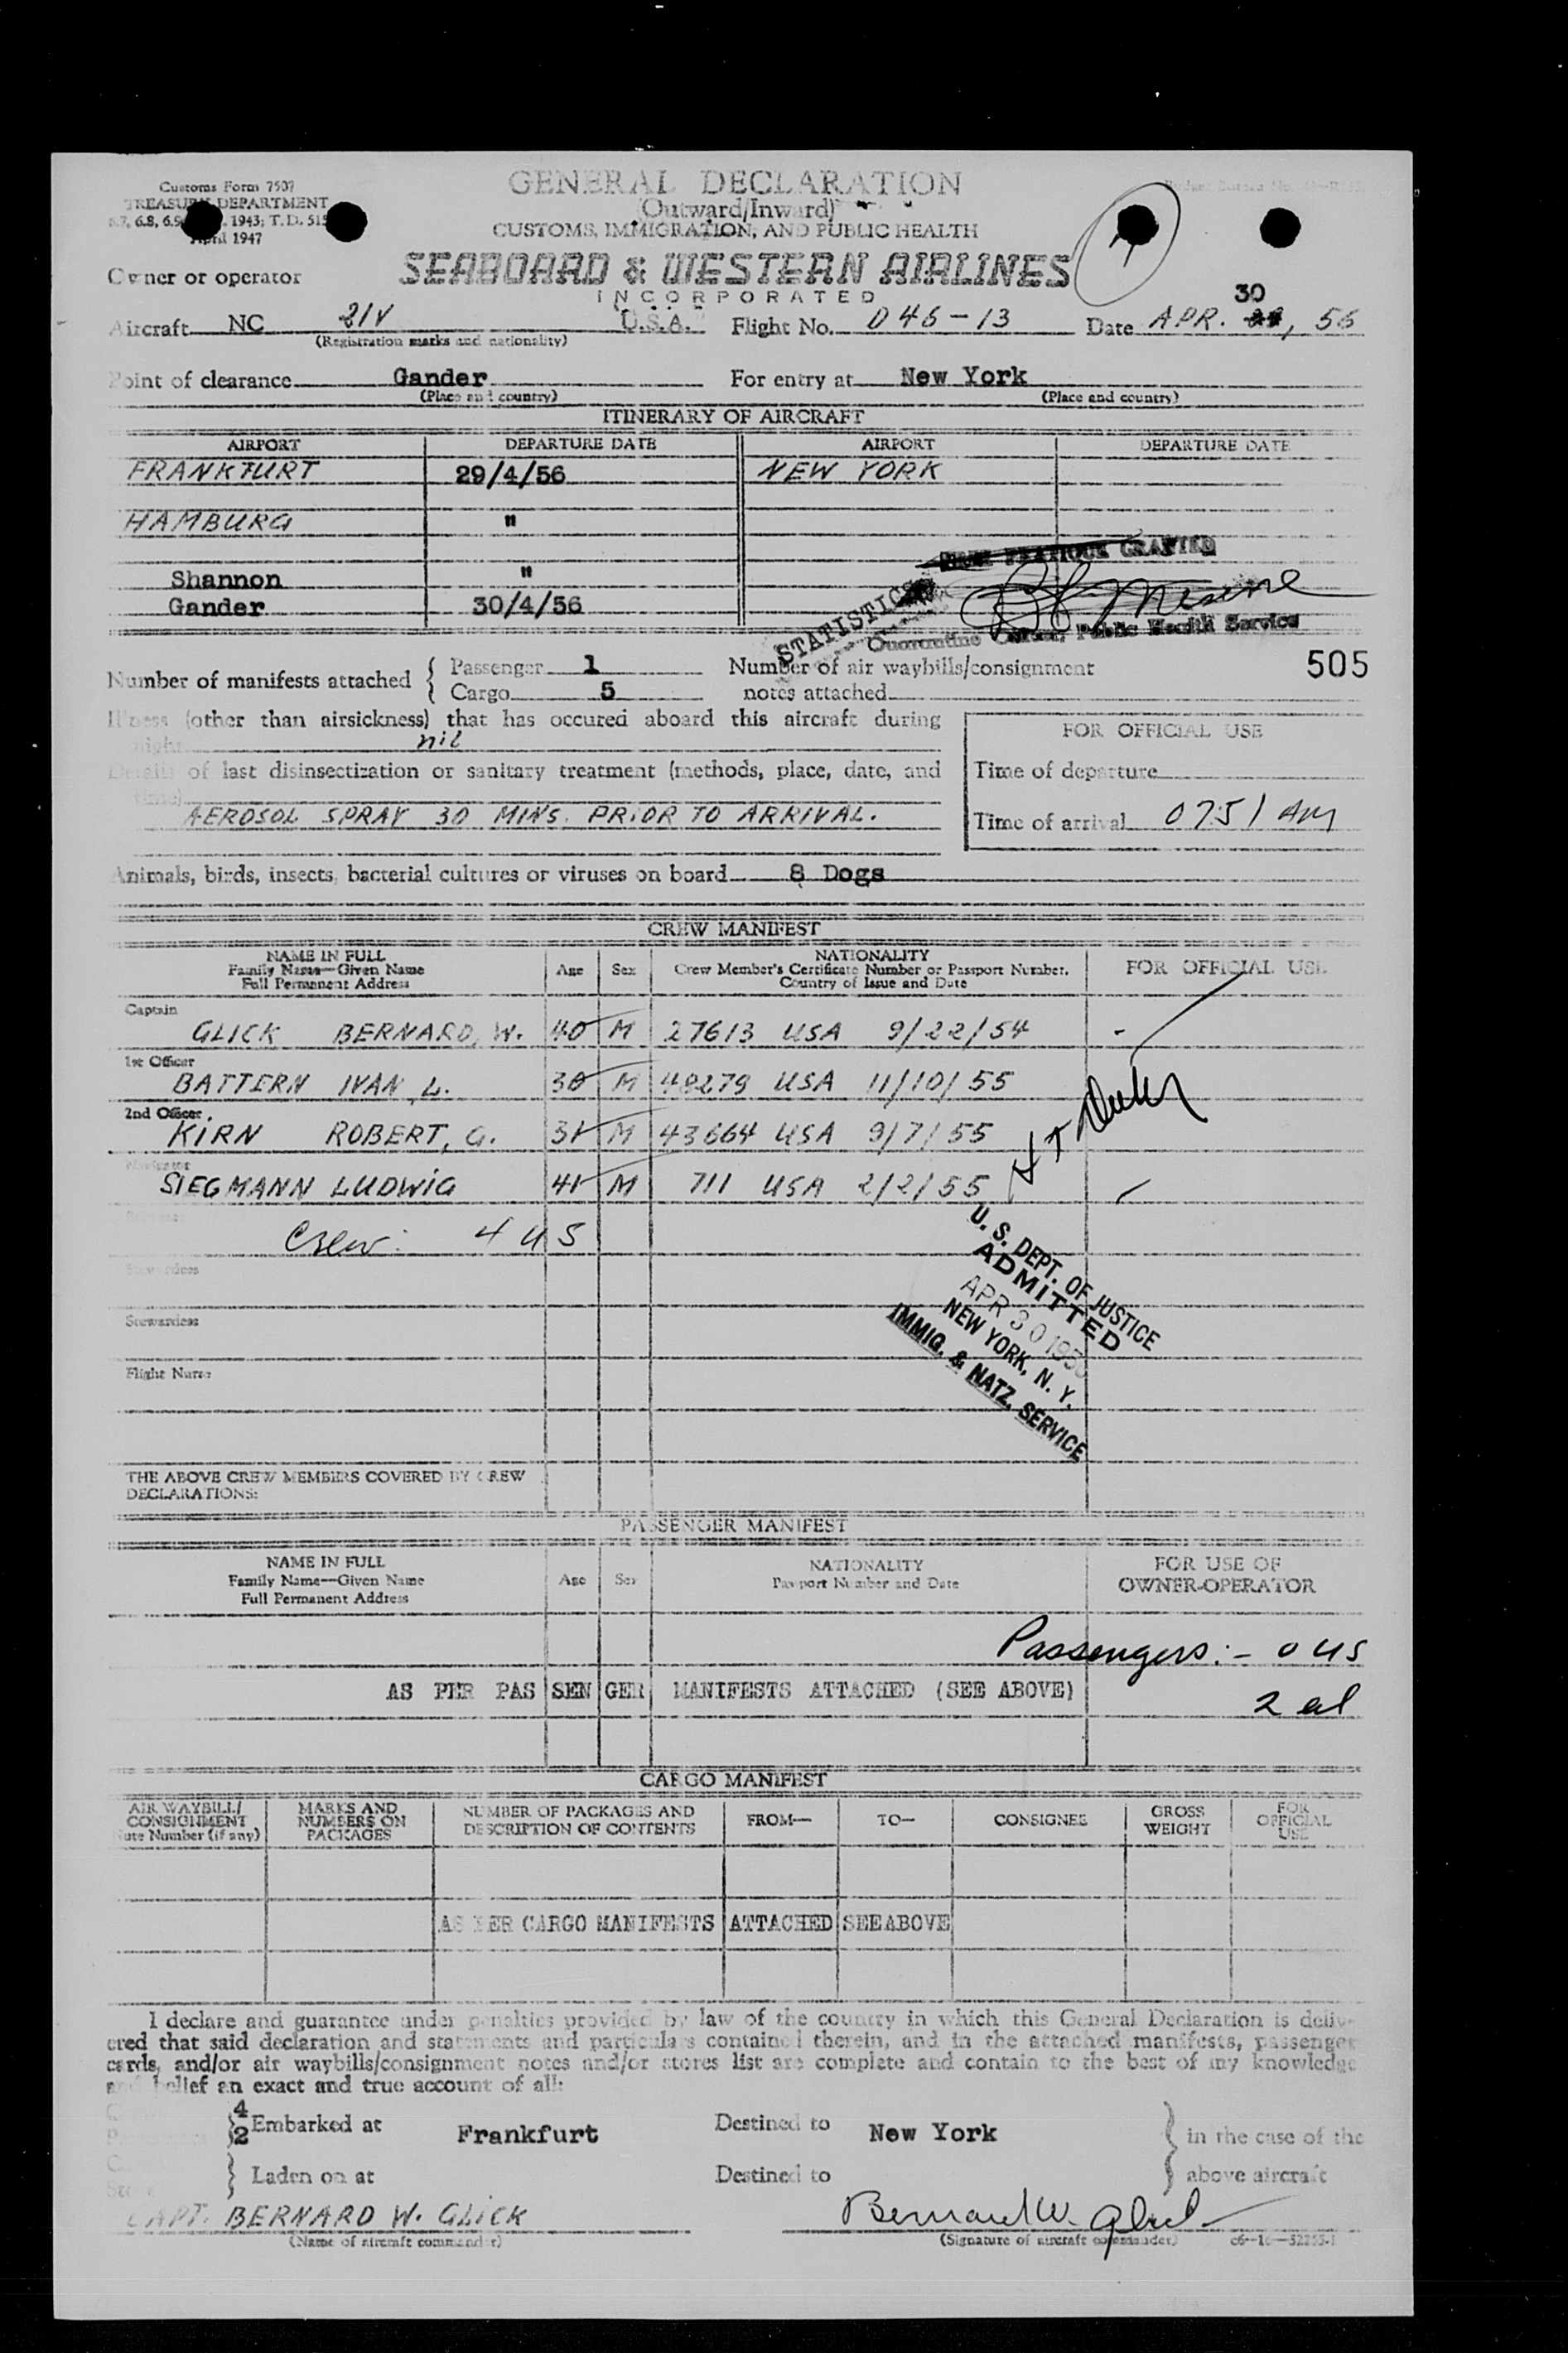 Customs Form 7507
TREASURY DEPARTMENT
1943; T.D. 515
April 1947
GENERAL DECLARATION
(Outward/Inward)
CUSTOMS, IMMIGRATION, AND PUBLIC HEALTH
Owner or operator
SEABOARD & WESTERN AIRLINES
INCORPORATED
Aircraft NC 21V U.S.A. Flight No. D 46-13 Date APR. 30, 56
(Registration marks and nationality)
Point of clearance Gander For entry at New York
(Place and country) (Place and country)
ITINERARY OF AIRCRAFT
AIRPORT DEPARTURE DATE AIRPORT DEPARTURE DATE
FRANKFURT 29/4/56 NEW YORK
HAMBURG "
PRATIQUE GRANTED
Shannon "
Gander 30/4/56
STATISTICS
Quarantine Officer, Public Health Service
505
Number of manifests attached { Passenger 1 Number of air waybills/consignment
Cargo 5 notes attached
Illness (other than airsickness) that has occured aboard this aircraft during
flight nil
FOR OFFICIAL USE
Details of last disinsectization or sanitary treatment (methods, place, date, and
time)
Time of departure
AEROSOL SPRAY 30 MINS. PRIOR TO ARRIVAL.
Time of arrival 0751 AM
Animals, birds, insects, bacterial cultures or viruses on board 8 Dogs
CREW MANIFEST
NAME IN FULL
Family Name—Given Name
Full Permanent Address
Age Sex
NATIONALITY
Crew Member's Certificate Number or Passport Number.
Country of Issue and Date
FOR OFFICIAL USE
Captain
GLICK BERNARD, W. 40 M 27613 USA 9/22/54
1st Officer
BATTERN IVAN L. 30 M 48279 USA 11/10/55
2nd Officer
KIRN ROBERT, G. 31 M 43664 USA 9/7/55
Navigator
SIEGMANN LUDWIG 41 M 711 USA 2/2/55
Crew: 4 US
Stewardess
Stewardess
Flight Nurse
U. S. DEPT. OF JUSTICE
ADMITTED
APR 30 1956
NEW YORK, N. Y.
IMMIG. & NATZ. SERVICE
THE ABOVE CREW MEMBERS COVERED BY CREW
DECLARATIONS:
PASSENGER MANIFEST
NAME IN FULL
Family Name—Given Name
Full Permanent Address
Age Sex
NATIONALITY
Passport Number and Date
FOR USE OF
OWNER-OPERATOR
Passengers:- 0 US
AS PER PASSENGER MANIFESTS ATTACHED (SEE ABOVE)
2 al
CARGO MANIFEST
AIR WAYBILL/
CONSIGNMENT
Note Number (if any)
MARKS AND
NUMBERS ON
PACKAGES
NUMBER OF PACKAGES AND
DESCRIPTION OF CONTENTS
FROM—
TO—
CONSIGNEE
GROSS
WEIGHT
FOR
OFFICIAL
USE
AS PER CARGO MANIFESTS ATTACHED SEE ABOVE
I declare and guarantee under penalties provided by law of the country in which this General Declaration is deliv-
ered that said declaration and statements and particulars contained therein, and in the attached manifests, passenger
cards, and/or air waybills/consignment notes and/or stores list are complete and contain to the best of my knowledge
and belief an exact and true account of all:
4
2 } Embarked at Frankfurt Destined to New York } in the case of the
} Laden on at Destined to } above aircraft
CAPT. BERNARD W. GLICK Bernard W. Glick
(Name of aircraft commander) (Signature of aircraft commander)